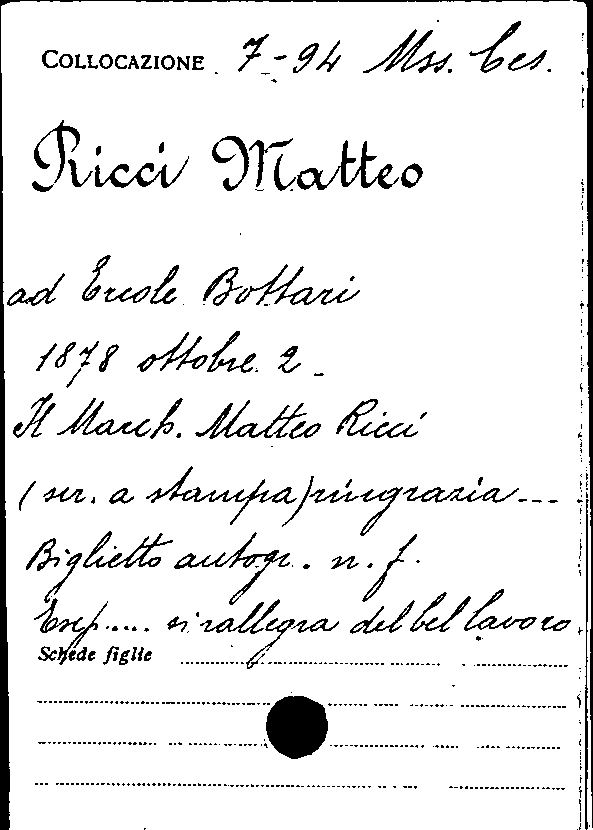 COLLOCAZIONE 7-94 Mss. Ces.
Ricci Matteo
ad Ercole Bottari
1878 ottobre 2_
Il March. Matteo Ricci
(scr. a stampa) ringrazia ---
Biglietto autogr. n. f.
.... si rallegra del bel lavoro.
Schede figlie